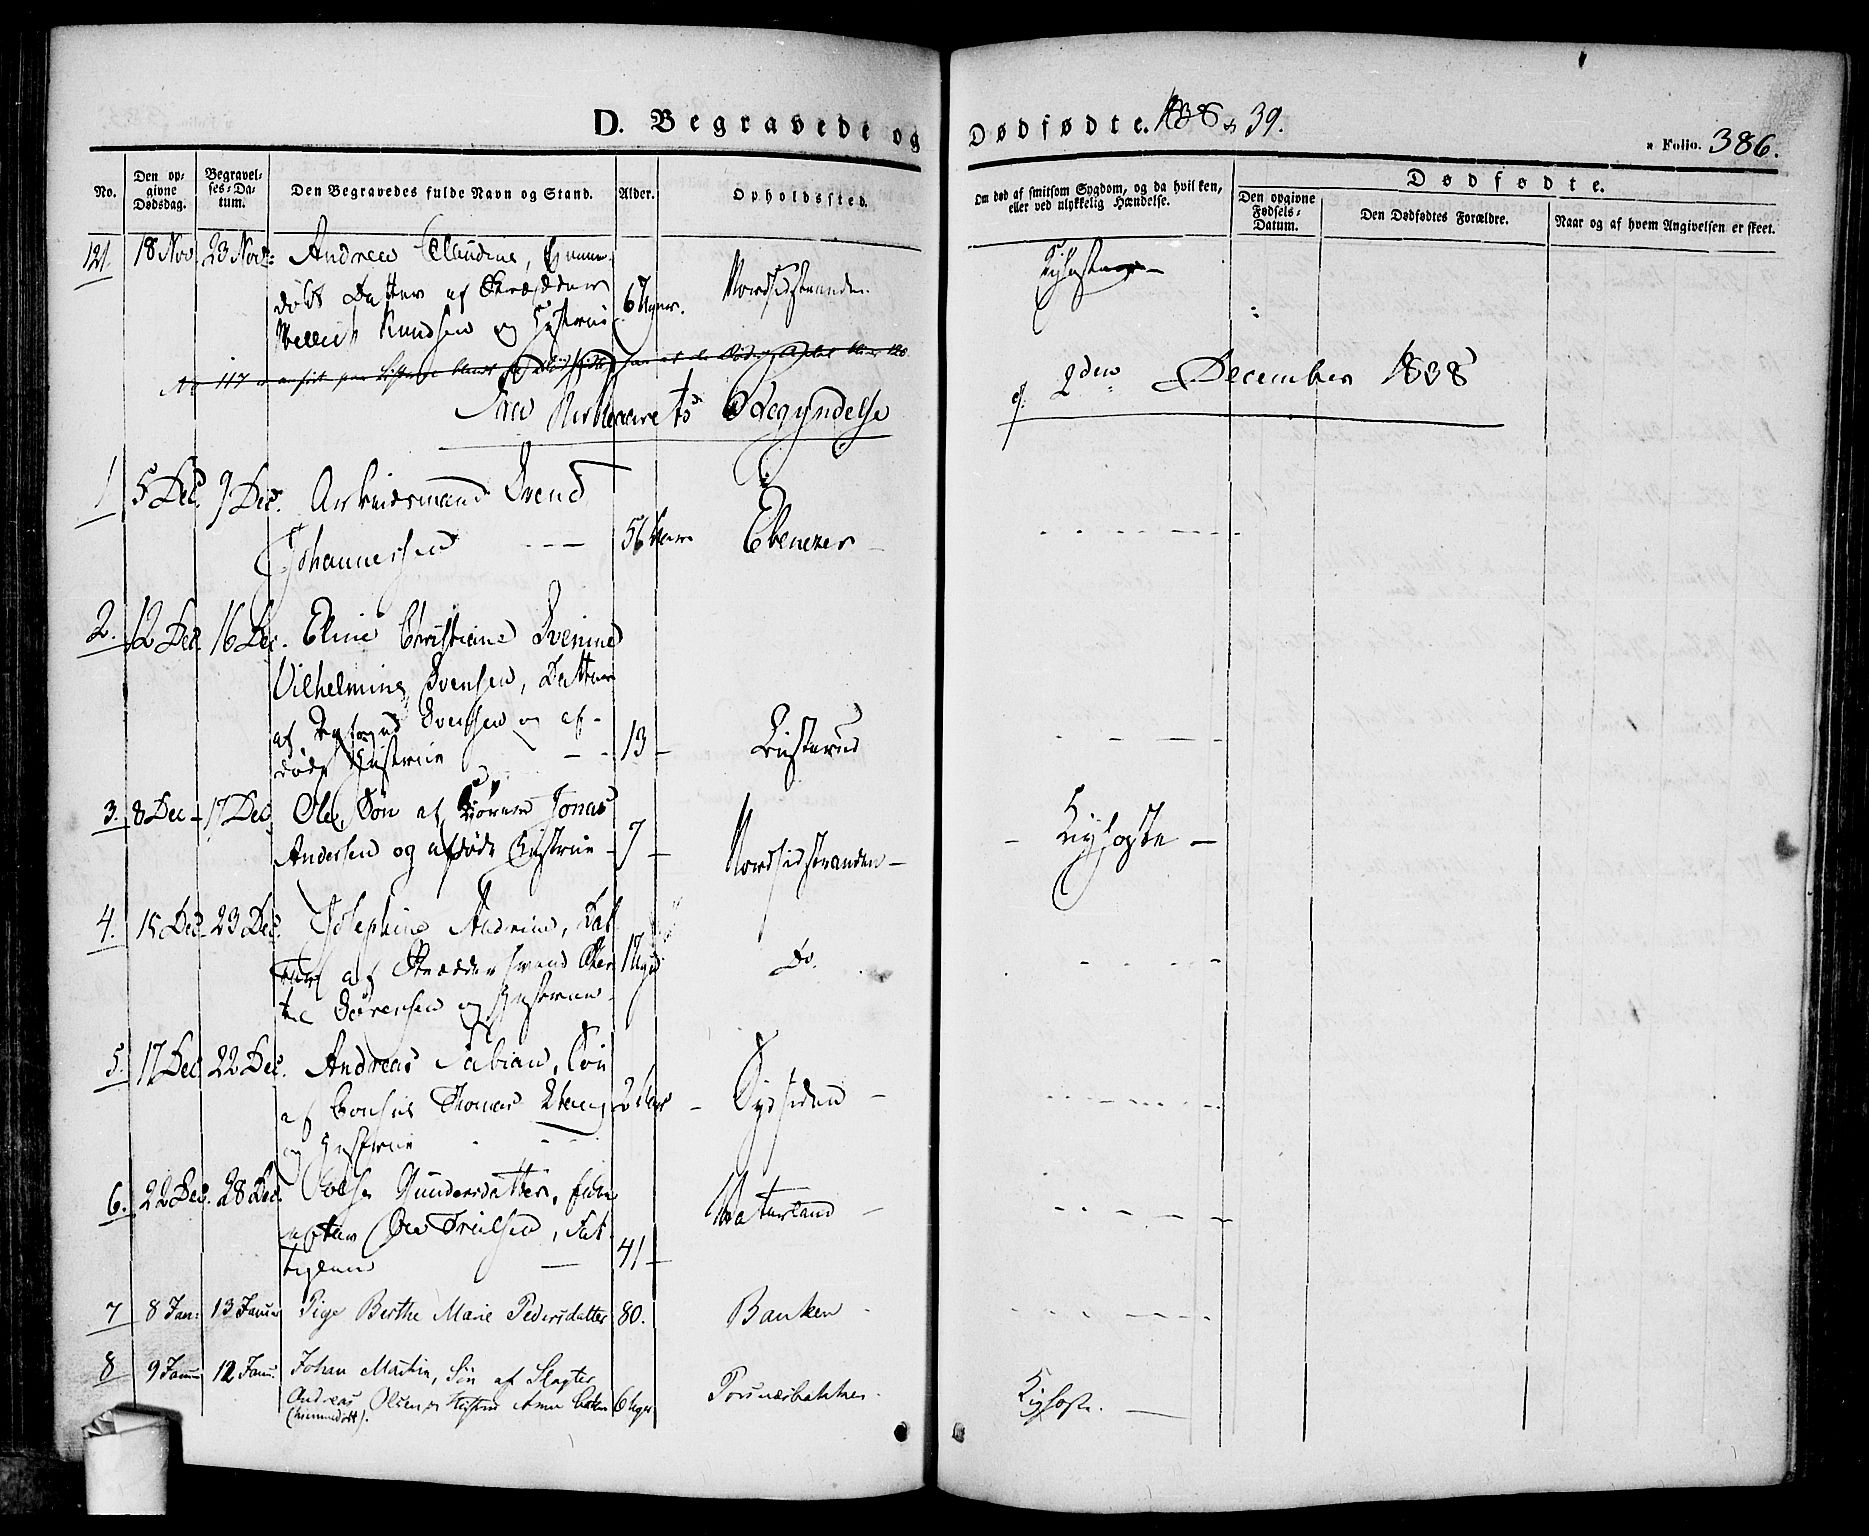 D. Begravede og Dødfødte. 1838 & 39.
Folio. 386.
No.
Den opgivne Dødsdag.
Begravelses-Datum.
Den Begravedes fulde Navn og Stand.
Alder.
Opholdssted.
Om død af smitsom Sygdom, og da hvilken, eller ved ulykkelig Hændelse.
Dødfødte.
Den opgivne Fødsels-Datum.
Den Dødfødtes Forældre.
Naar og af hvem Angivelsen er skeet.
121. 18 Nov 23 Nov. Andrea Claudine, hjemme
døbt Datter af Skrædder
Knudsen og Hustrue 6 Uger. Nordsidstranden Kighoste
Fra Kirkeaarets Begyndelse d. 2den December 1838
1. 5 Dec. 9 Dec. Arbeidsmand Svend
Johannessen 56 Ebenezer
2. 12 Dec. 16 Dec. Eline Christiane Svenine
Vilhelmine Svensen, Datter
af Svensen og af-
døde Hustrue 13 Risterud
3. 8 Dec 17 Dec. Ole, Søn af Jonas
Andersen og afdøde Hustrue 7 Nordsidstranden Kighoste
4. 15 Dec. 23 Dec. Josephine Andrine, Dat
ter af Skrædder
Sørensen og Hustrue 1 Do.
5. 17 Dec 22 Dec. Andreas Fabian, Søn
af Consul Thomas Stang
og Hustrue 2 Sydsiden
6. 22 Dec. 28 Dec. Gundersdatter, Enke
efter Ole Truelsen, Fat
tiglem 41 Naturland
7 8 Jan: 13 Januar Pige Berthe Marie Pedersdatter 80. Banken
8 9 Januar 12 Janu: Johan Martin, Søn af Slagter
Andreas Olsen & Hustrue Anne 6 Uger. Torsnæsbakken
(hjemmedøbt). Kighoste.